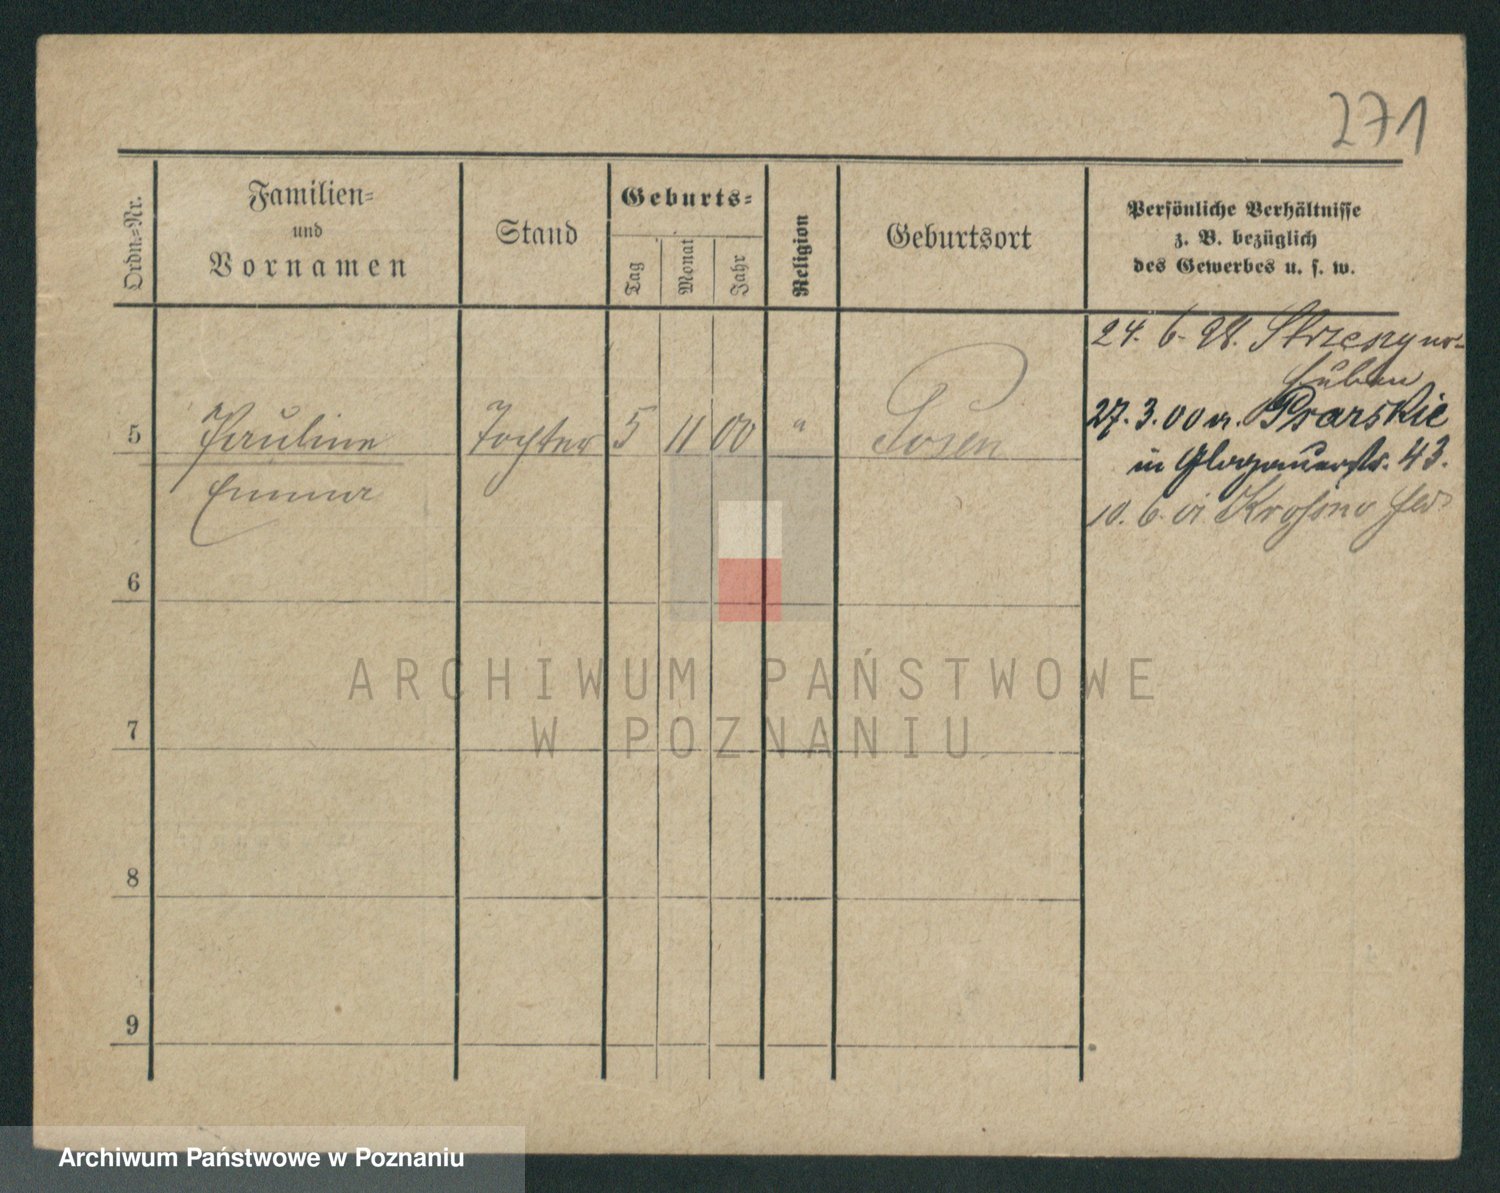 271
Ordn.-Nr.
Familien-
und
Vornamen
Stand
Geburts-
Tag
Monat
Jahr
Religion
Geburtsort
Persönliche Verhältnisse
z. B. bezüglich
des Gewerbes u. s. w.
24. 6. 98.
27. 3. 00 Psarskie
5 Pauline Tochter 5 11 00 " Posen
in Glogauerstr. 43.
Emma
10. 6. 01
6
7
8
9
ARCHIWUM PAŃSTWOWE
W POZNANIU
Archiwum Państwowe w Poznaniu